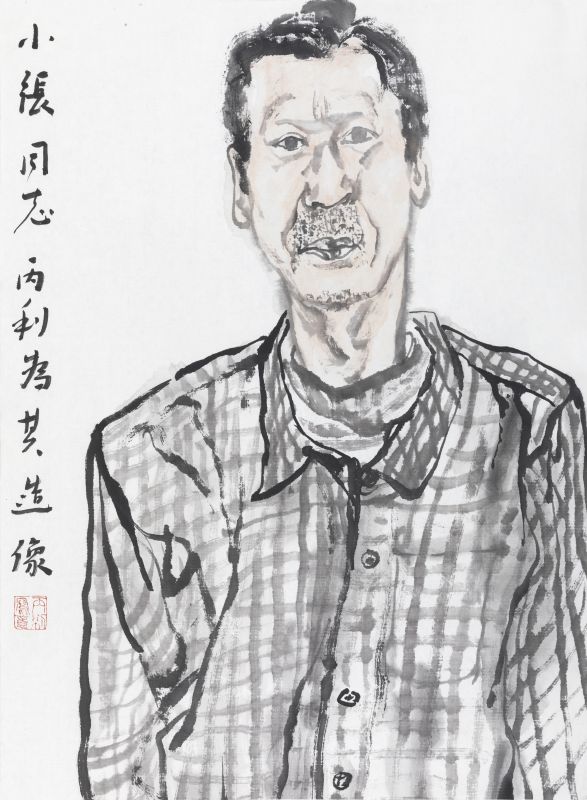 小張同志丙利為其造像